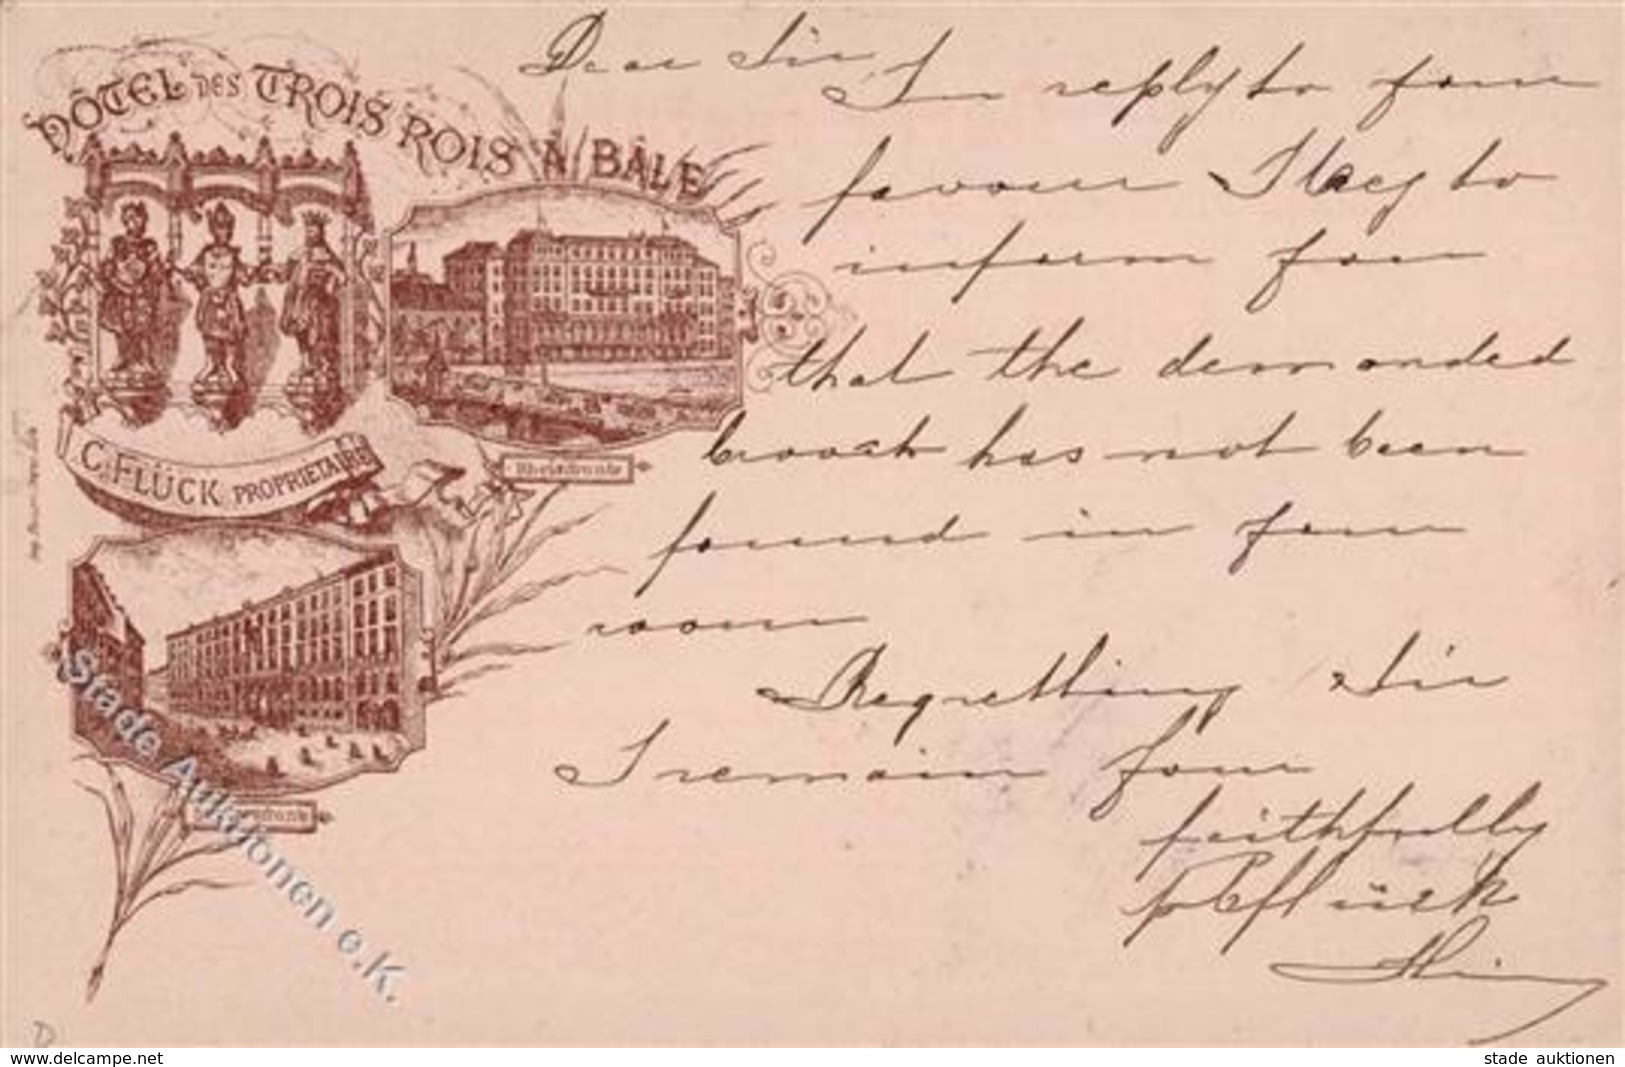 HÔTEL DES TROIS ROIS À BÂLE
C. FLÜCK PROPRIETAIRE
Rheinfronte
Dear Sir
In reply to your
favour I beg to
inform you
that the demanded
brooch has not been
found in your
room
Regretting Sir
I remain your
faithfully
p CFlück
Stade Auktionen e.K.
www.delcampe.net
stade auktionen